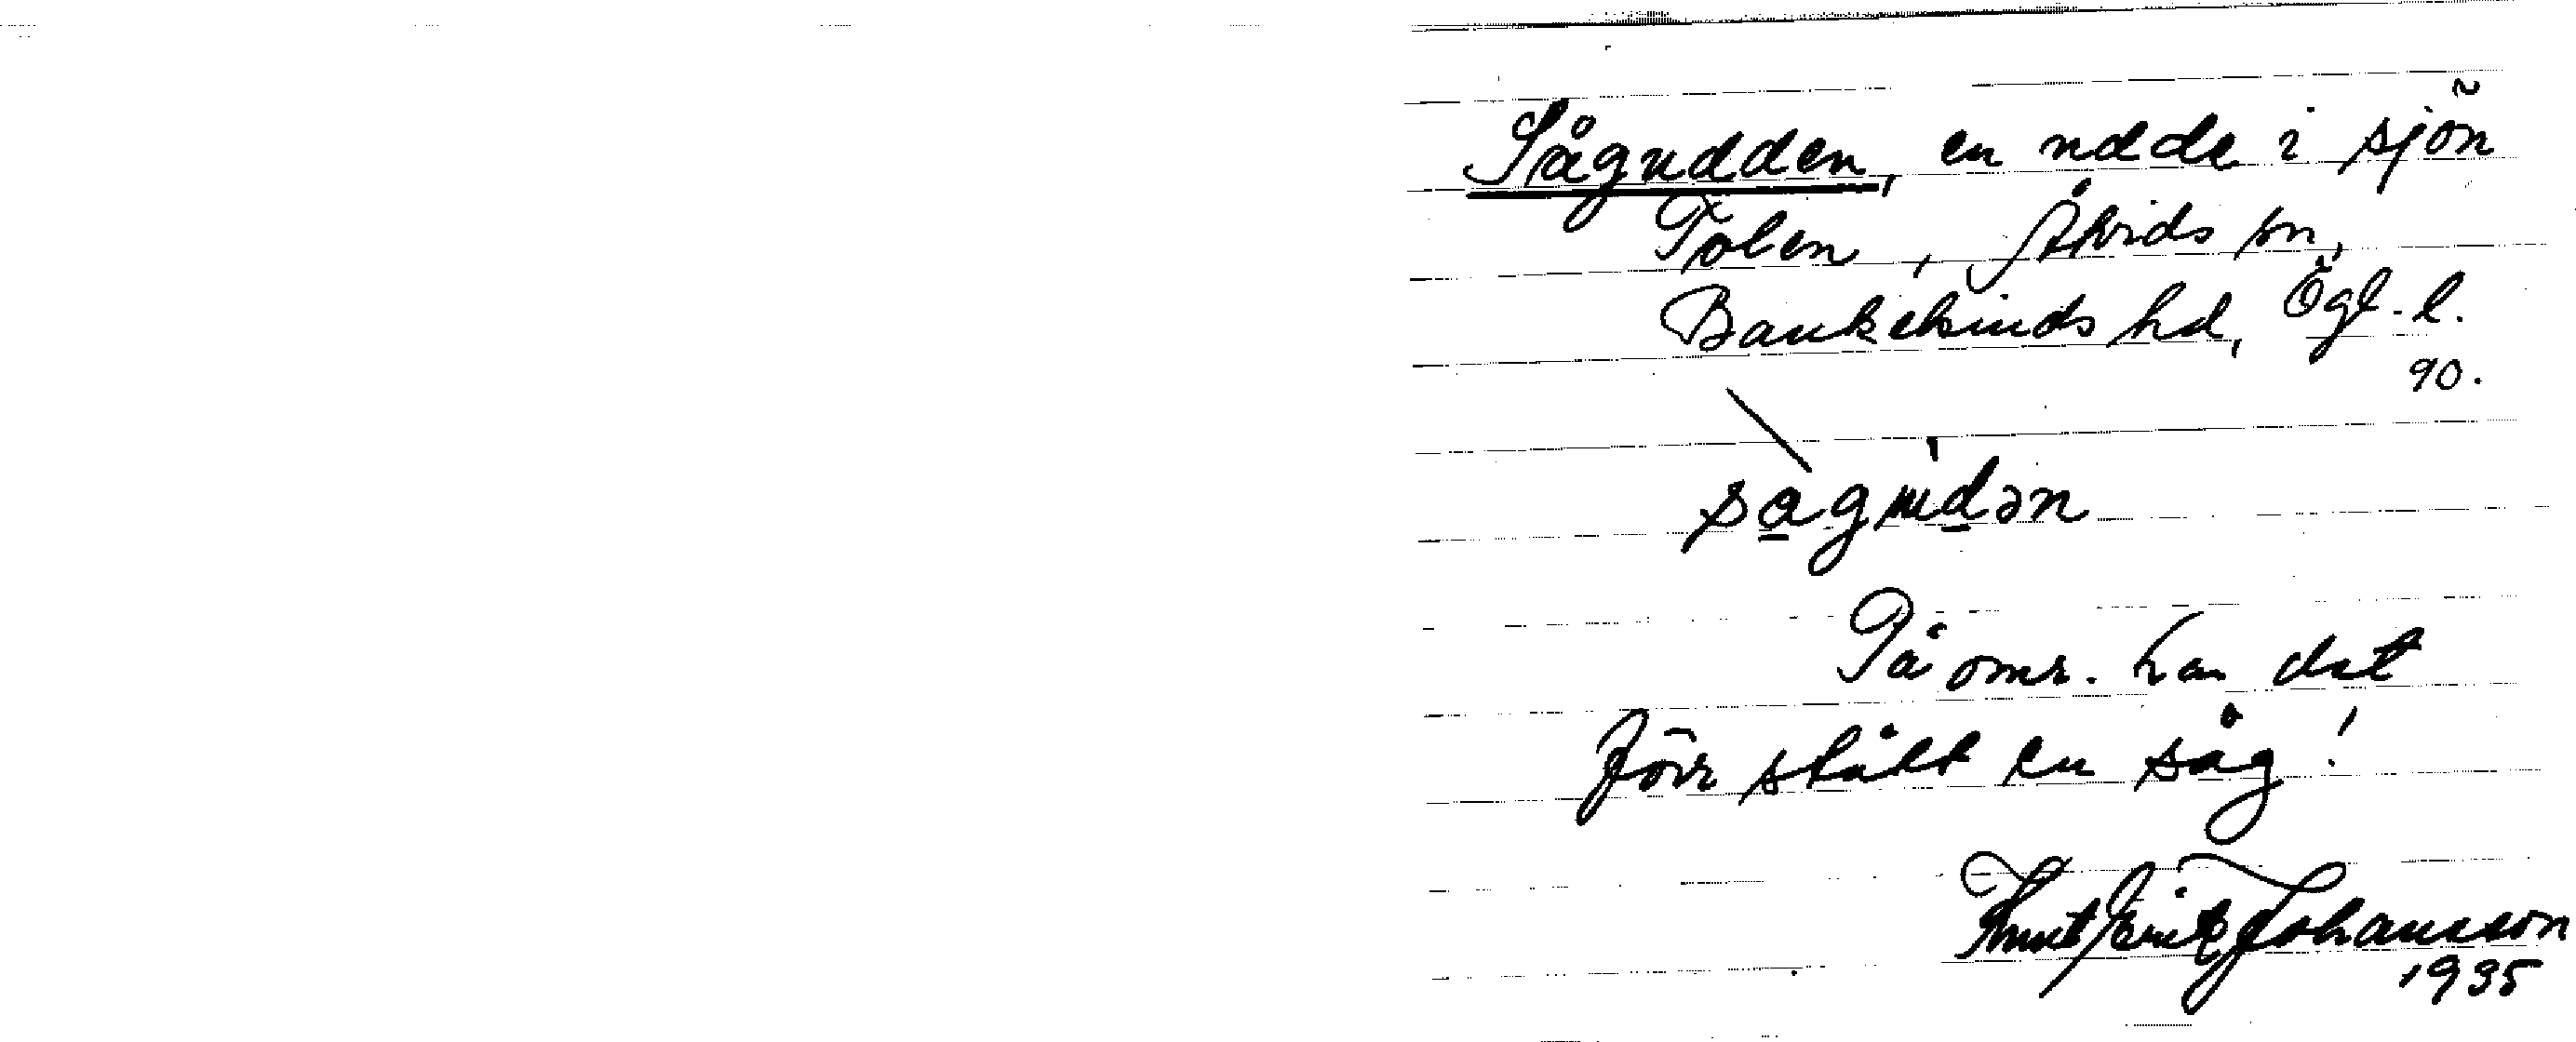 Sågudden, en udde i sjön
Tolen, Åtvids sn,
Bankekinds hd, Ögl. l.
90.
sagudən
På omr. har det
förr stått en såg!
Knut Erik Johansson
1935